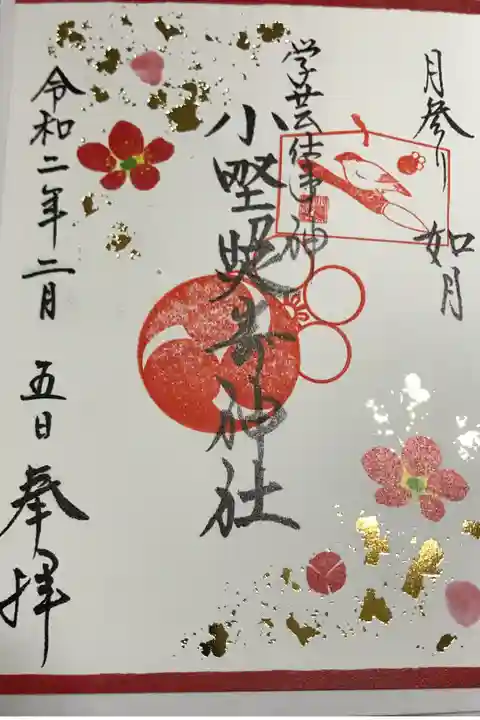 月参り 如月
学芸仕事神
小野照崎神社
令和二年二月 五日
奉拝